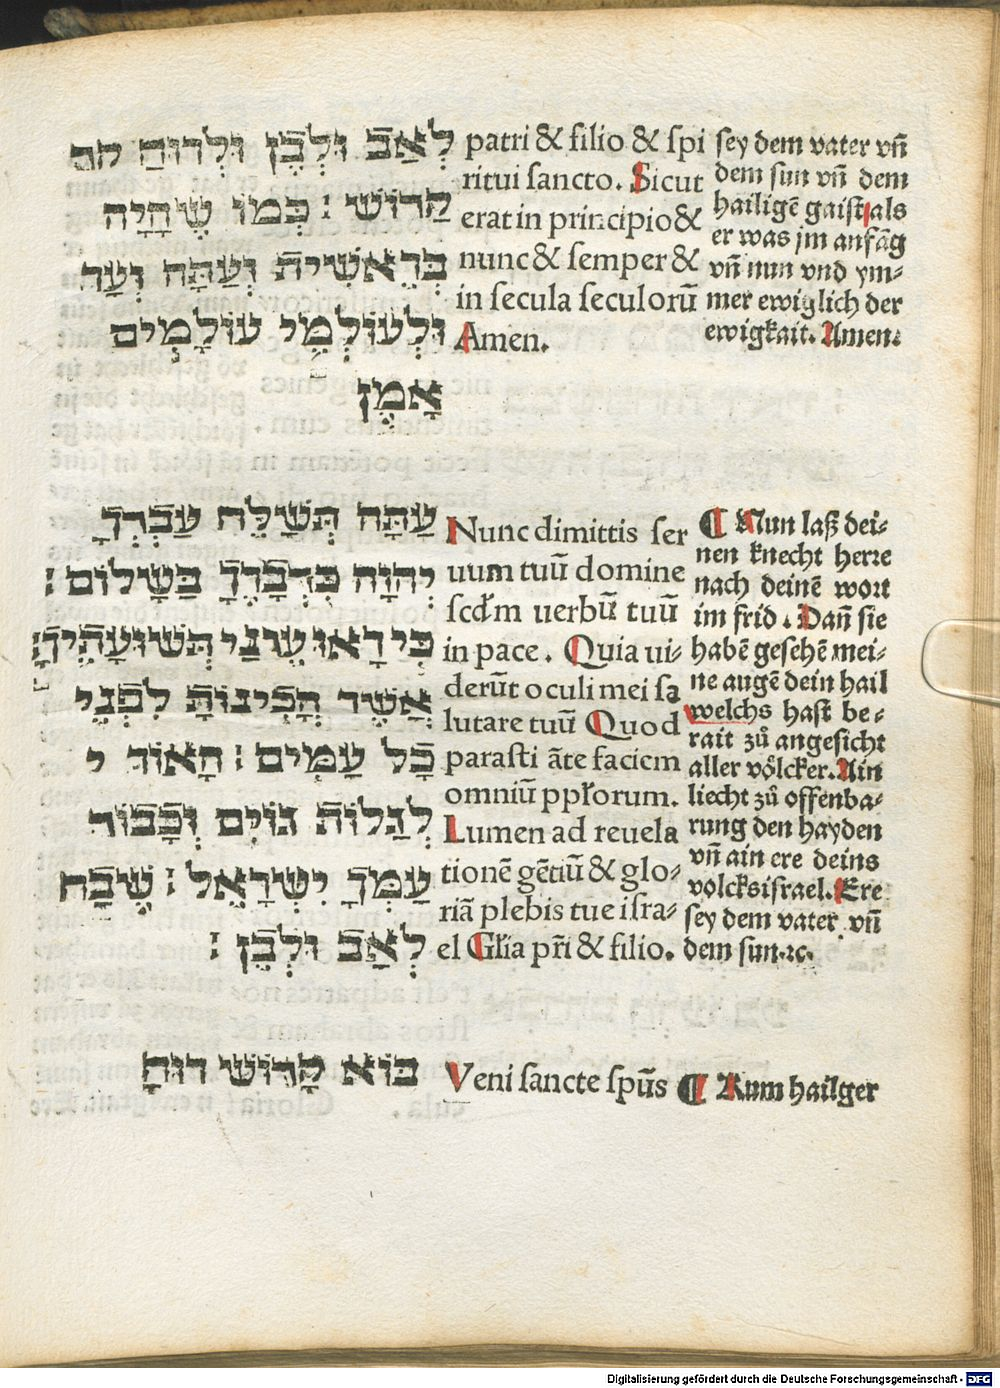 לְאַב וּלְבֶן וּלְרוּחַ הק
קָדוֹשׁ : כְּמוֹ שֶׁהָיָה
בְּרֵאשִׁית וְעַתָּה וְעַד
וּלְעוֹלְמֵי עוֹלָמִים
אָמֶן
patri & filio & spi
ritui sancto. Sicut
erat in principio &
nunc & semper &
in secula seculorū
Amen.
sey dem vater vñ
dem sun vñ dem
hailigē gaist als
er was jm anfāg
vñ nun vnd ym-
mer ewiglich der
ewigkait. Amen.
עַתָּה תְּשַׁלַּח עַבְדְּךָ
יְהוָה כִּדְבָרֶךָ בַּשָׁלוֹם :
כִּי רָאוּ עֵינַי תְּשׁוּעָתֶיךָ
אֲשֶׁר הֲכִינוֹתָ לִפְנֵי
כָּל עַמִּים : הָאוֹר י
לְגַלוֹת גּוֹיִם וְכָבוֹד
עַמְּךָ יִשְׂרָאֵל : שֶׁבַח
לְאַב וּלְבֶן :
Nunc dimittis ser
uum tuū domine
scđm uerbū tuū
in pace. Quia ui-
derūt oculi mei sa
lutare tuū Quod
parasti āte faciem
omniū ppłorum.
Lumen ad reuela
tionē gētiū & glo-
riā plebis tue isra-
el Głia pr̄i & filio.
¶ Nun laß dei-
nen knecht herre
nach deinē wort
im frid. Dañ sie
habē gesehē mei-
ne augē dein hail
welchs hast be-
rait zů angesicht
aller völcker. Ain
liecht zů offenba-
rung den hayden
vñ ain ere deins
volcks israel. Ere
sey dem vater vñ
dem sun. ꝛc.
בּוֹא קָדוֹשׁ רוּחַ
Veni sancte spūs
¶ Kum hailger
Digitalisierung gefördert durch die Deutsche Forschungsgemeinschaft - DFG